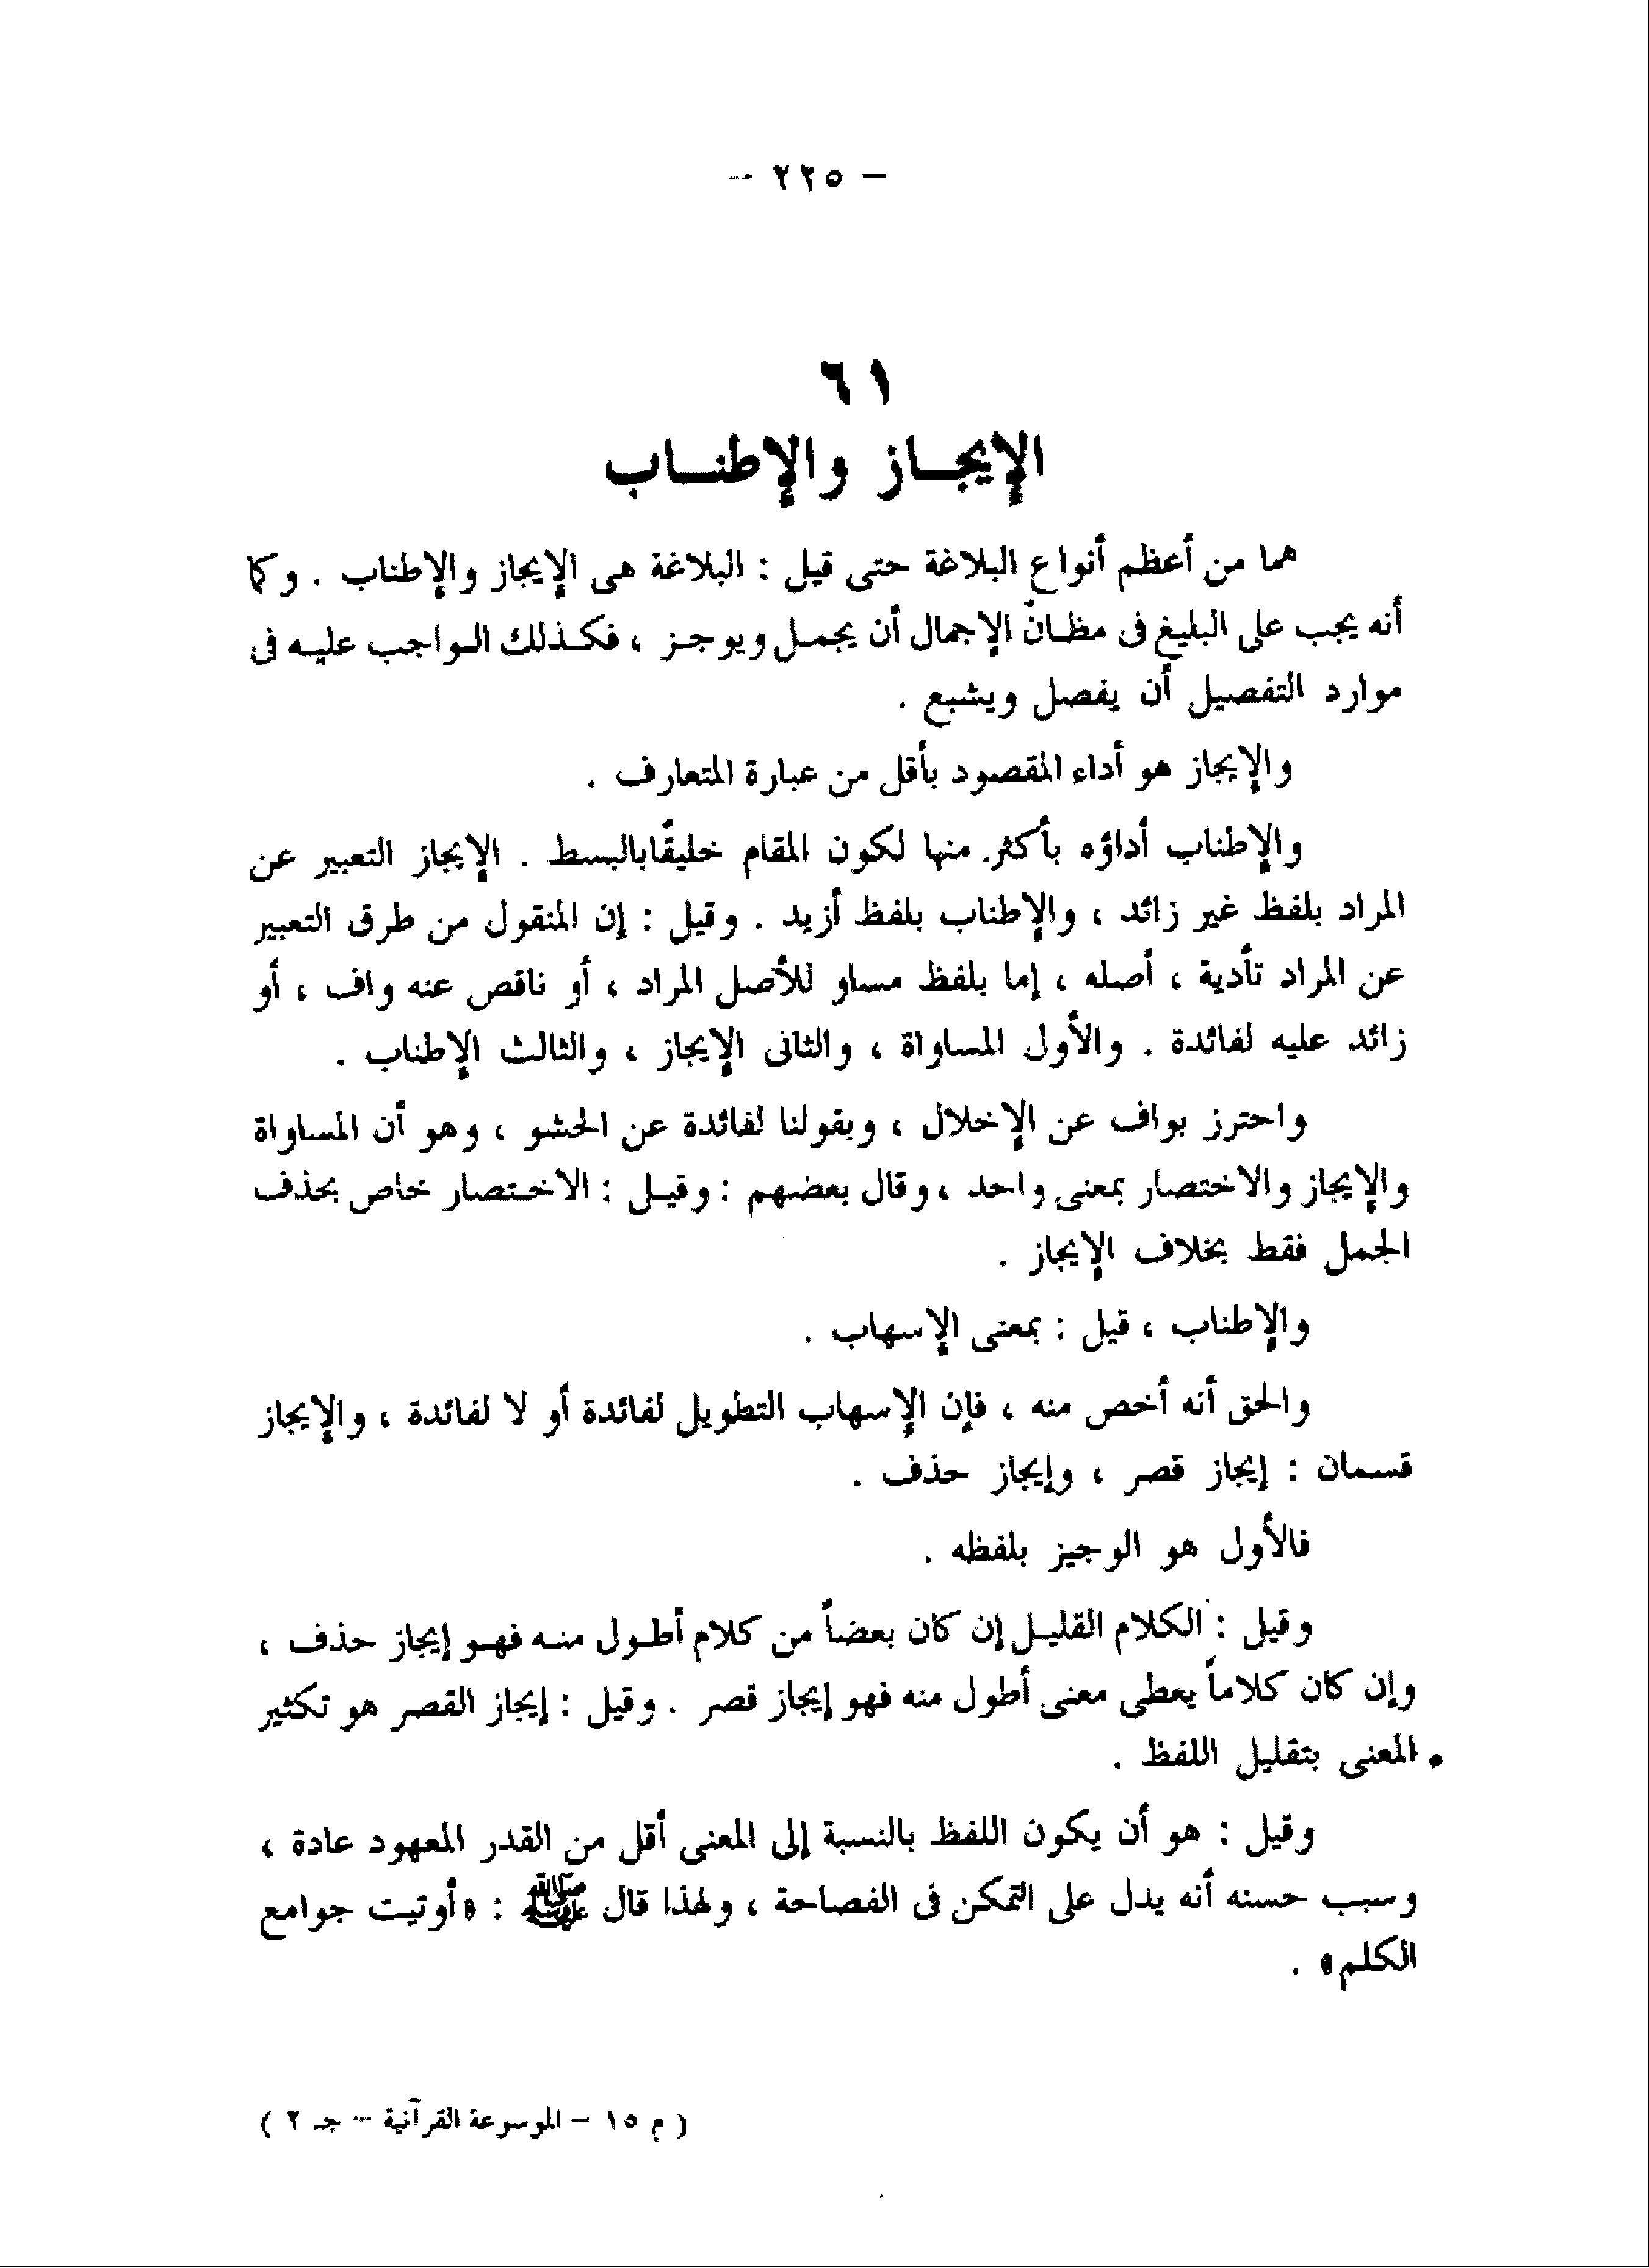 – ٢٢٥ –
٦١
الإيجـاز والإطنـاب
هما من أعظم أنواع البلاغة حتى قيل : البلاغة هى الإيجاز والإطناب . وكما
أنه يجب على البليغ فى مظانّ الإجمال أن يجمل ويوجز ، فكذلك الواجب عليه فى
موارد التفصيل أن يفصل ويشبع .
والإيجاز هو أداء المقصود بأقل من عبارة المتعارف .
والإطناب أداؤه بأكثر منها لكون المقام خليقًا بالبسط . الإيجاز التعبير عن
المراد بلفظ غير زائد ، والإطناب بلفظ أزيد . وقيل : إن المنقول من طرق التعبير
عن المراد تأدية ، أصله ، إما بلفظ مساو للأصل المراد ، أو ناقص عنه واف ، أو
زائد عليه لفائدة . والأول المساواة ، والثانى الإيجاز ، والثالث الإطناب .
واحترز بواف عن الإخلال ، وبقولنا لفائدة عن الحشو ، وهو أن المساواة
والإيجاز والاختصار بمعنى واحد ، وقال بعضهم : وقيل : الاختصار خاص بحذف
الجمل فقط بخلاف الإيجاز .
والإطناب ، قيل : بمعنى الإسهاب .
والحق أنه أخص منه ، فإن الإسهاب التطويل لفائدة أو لا لفائدة ، والإيجاز
قسمان : إيجاز قصر ، وإيجاز حذف .
فالأول هو الوجيز بلفظه .
وقيل : الكلام القليل إن كان بعضاً من كلام أطول منه فهو إيجاز حذف ،
وإن كان كلاماً يعطى معنى أطول منه فهو إيجاز قصر . وقيل : إيجاز القصر هو تكثير
المعنى بتقليل اللفظ .
وقيل : هو أن يكون اللفظ بالنسبة إلى المعنى أقل من القدر المعهود عادة ،
وسبب حسنه أنه يدل على التمكن فى الفصاحة ، ولهذا قال ﷺ : «أوتيت جوامع
الكلم» .
( م ١٥ – الموسوعة القرآنية – جـ ٢ )